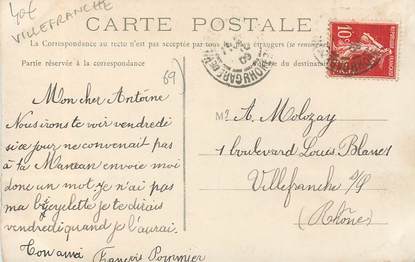 40€
VILLEFRANCHE
CARTE POSTALE
La Correspondance au recto n'est pas acceptée par tous les pays étrangers (se renseigner
Partie réservée à la correspondance
du destinataire
69
10c
Mon cher Antoine
Nous irons te voir vendredi
si ce jour ne convenait pas
à ta Maman envoie moi
donc un mot, je n'ai pas
ma bicyclette je te dirais
vendredi quand je l'aurai.
Ton ami François Pommier
Mr A. Molozay
1 boulevard Louis Blanc
Villefranche s/S
(Rhône)